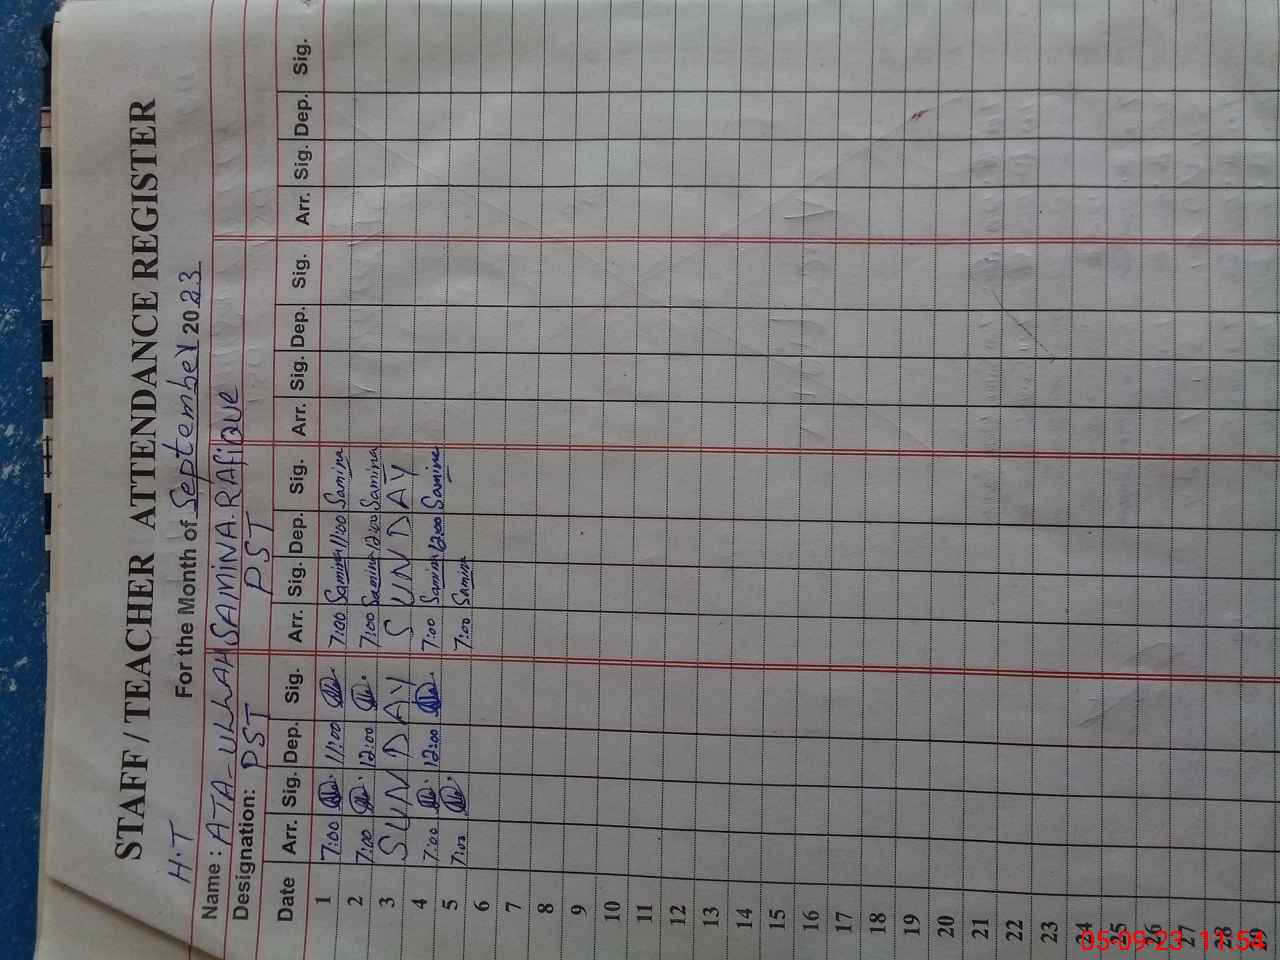 STAFF / TEACHER ATTENDANCE REGISTER
H.T For the Month of September 2023
Name : ATA-ULLAH SAMINA.RAFIQUE
Designation: PST PST
Date Arr. Sig. Dep. Sig. Arr. Sig. Dep. Sig. Arr. Sig. Dep. Sig. Arr. Sig. Dep. Sig.
1 7:00 11:00 7:00 Samina 11:00 Samina
2 7:00 12:00 7:00 Samina 12:00 Samina
3 SUNDAY SUNDAY
4 7:00 12:00 7:00 Samina 12:00 Samina
5 7:00 7:00 Samina
6
7
8
9
10
11
12
13
14
15
16
17
18
19
20
21
22
23
24
25
26
27
28
29
05-09-23 11:54